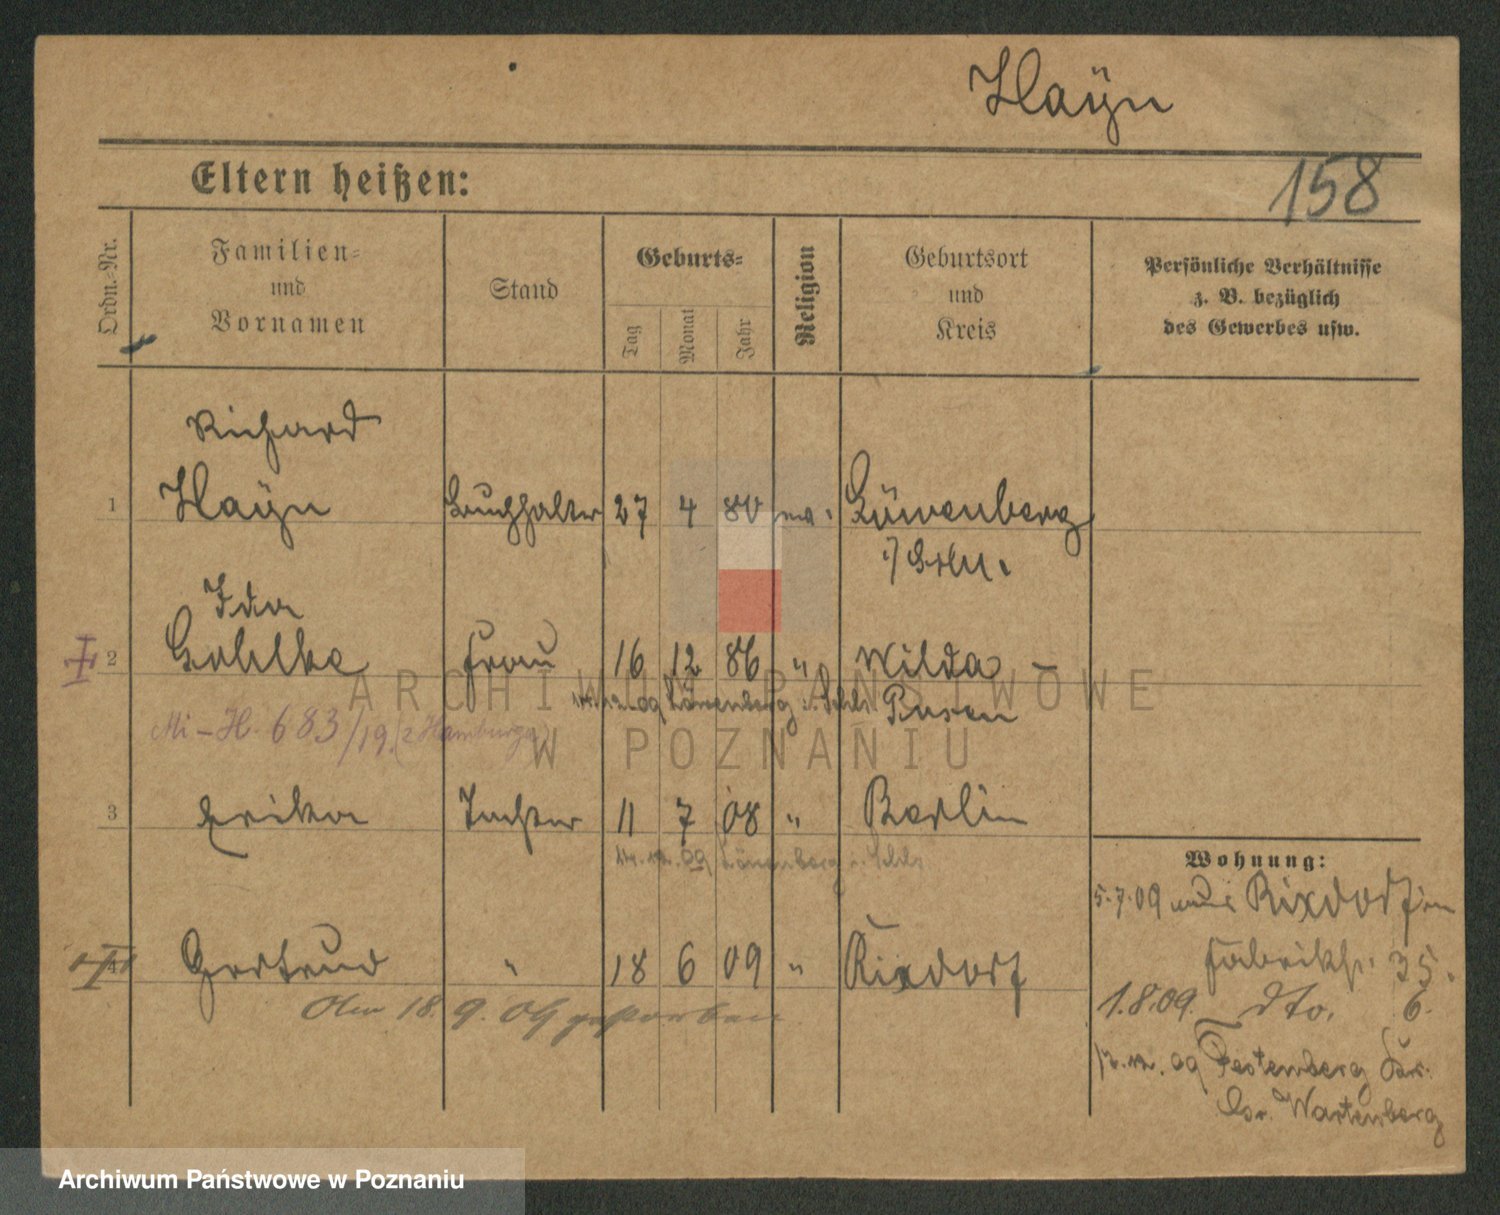 Haÿn
Eltern heißen:
158
Ordn.-Nr.
Familien-
und
Vornamen
Stand
Geburts-
Tag
Monat
Jahr
Religion
Geburtsort
und
Kreis
Persönliche Verhältnisse
z. B. bezüglich
des Gewerbes usw.
Richard
1 Haÿn Buchhalter 27 4 80 Löwenberg
i/Schl.
Ida
2 Gohlke Frau 16 12 86 " Wilda –
09 Löwenberg i. Schls Posen
Mi – H. 683/19. (2 Hamburga)
3 Erika Tochter 11 7 08 " Berlin
09 Löwenberg i. Schls
Wohnung:
5.7.09 nach Rixdorf
4 Gertrud " 18 6 09 " Rixdorf
Fabrikstr. 35.
Am 18. 9. 09 gestorben
1.8.09. dto. 6.
09 Festenberg
Wartenberg
ARCHIWUM PAŃSTWOWE
W POZNANIU
Archiwum Państwowe w Poznaniu